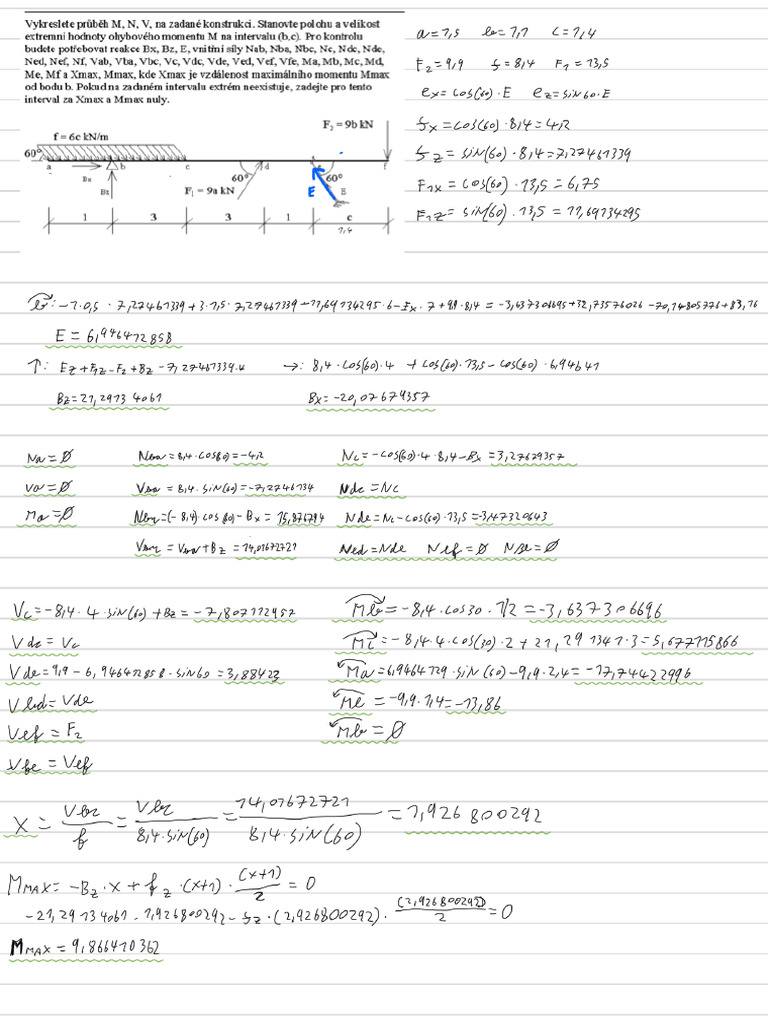 Vykreslete průběh M, N, V, na zadané konstrukci. Stanovte polohu a velikost
extremní hodnoty ohybového momentu M na intervalu (b,c). Pro kontrolu
budete potřebovat reakce Bx, Bz, E, vnitřní síly Nab, Nba, Nbc, Nc, Ndc, Nde,
Ned, Nef, Nf, Vab, Vba, Vbc, Vc, Vdc, Vde, Ved, Vef, Vfe, Ma, Mb, Mc, Md,
Me, Mf a Xmax, Mmax, kde Xmax je vzdálenost maximálního momentu Mmax
od bodu b. Pokud na zadaném intervalu extrém neexistuje, zadejte pro tento
interval za Xmax a Mmax nuly.
a=1,5 b=1,1 c=1,4
F2=9,9 f=8,4 F1=13,5
ex=cos(60)·E ez=sin60·E
fx=cos(60)·8,4=4,2
fz=sin(60)·8,4=7,27461339
F1x=cos(60)·13,5=6,75
F1z=sin(60)·13,5=11,69134295
F2 = 9b kN
f = 6c kN/m
60°
a b c d f
Bx
60° 60°
Bz F1 = 9a kN E E
1 3 3 1 c
1,4
b: -1·0,5·7,27461339+3·1,5·7,27461339-11,69134295·6-Ex·7+9,9·8,4=-3,637306695+32,73576026-70,14805776+83,16
E=6,946412858
↑: Ez+F1z-F2+Bz-7,27461339·4 →: 8,4·cos(60)·4+cos(60)·13,5-cos(60)·6,94641
Bz=21,29134061 Bx=-20,07679357
Na=0 Nba=8,4·cos60)=-4,2 Nc=-cos(60)·4·8,4-Bx=3,27679357
Va=0 Vba=8,4·sin(60)=-7,2746134 Ndc=Nc
Ma=0 Nbc=(-8,4)·cos60)-Bx=15,876794 Nde=Nc-cos(60)·13,5=-3,47320643
Vbc=Vba+Bz=14,01672721 Ned=Nde Nef=0 Nfe=0
Vc=-8,4·4·sin(60)+Bz=-7,807112957 Mb=-8,4·cos30·1/2=-3,637306696
Vdc=Vc Mc=-8,4·4·cos(30)·2+21,291341·3=5,677115866
Vde=9,9-6,946412858·sin60=3,88423 Md=6,9464129·sin(60)-9,9·2,4=-17,74422996
Ved=Vde Me=-9,9·1,4=-13,86
Vef=F2 Mf=0
Vfe=Vef
x=Vbc/f=Vbc/8,4·sin(60)=14,01672721/8,4·sin(60)=1,926800292
Mmax=-Bz·x+fz·(x+1)·(x+1)/2=0
-21,29134061·1,926800292-fz·(2,926800292)·(2,926800292)/2=0
Mmax=9,866410362